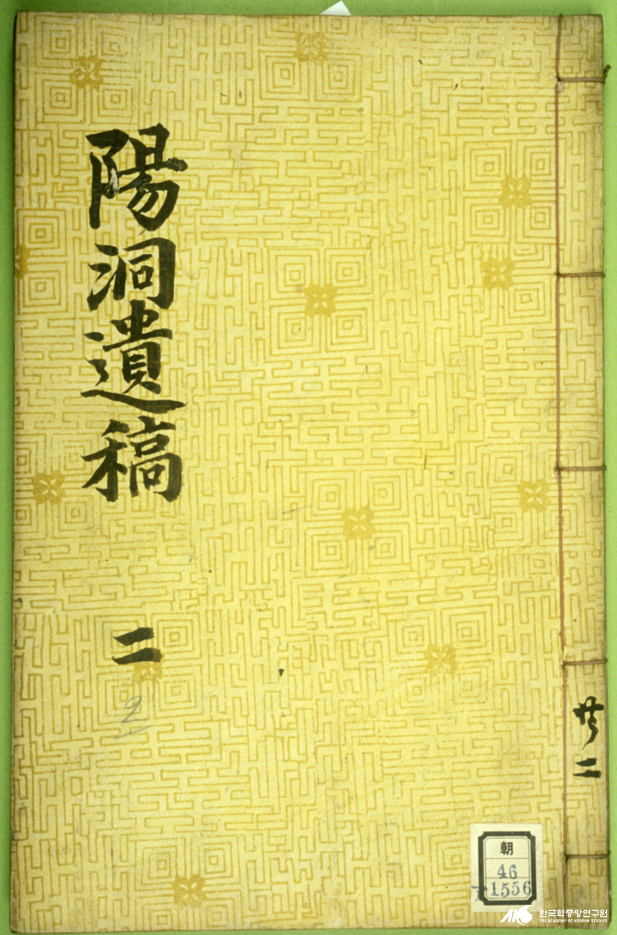 陽洞遺稿
二
2
共二
朝
46
1556
한국학중앙연구원
THE ACADEMY OF KOREAN STUDIES